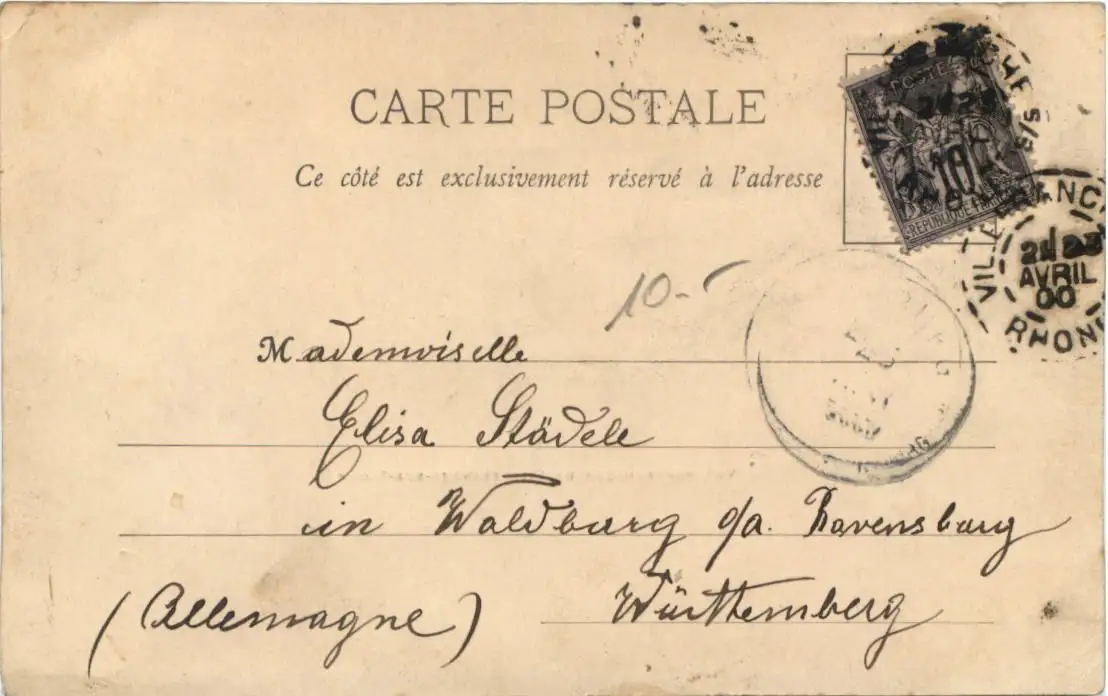 CARTE POSTALE
Ce côté est exclusivement réservé à l'adresse
POSTES
10
REPUBLIQUE
VILLEFRANCHE
AVRIL
00
RHONE
10-
Mademoiselle
Elisa Städele
in Waldburg o/a. Ravensburg
Württemberg
(Allemagne)